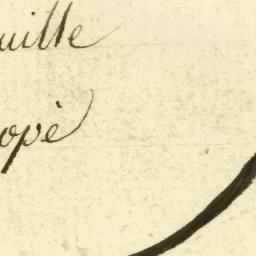 uille
opé